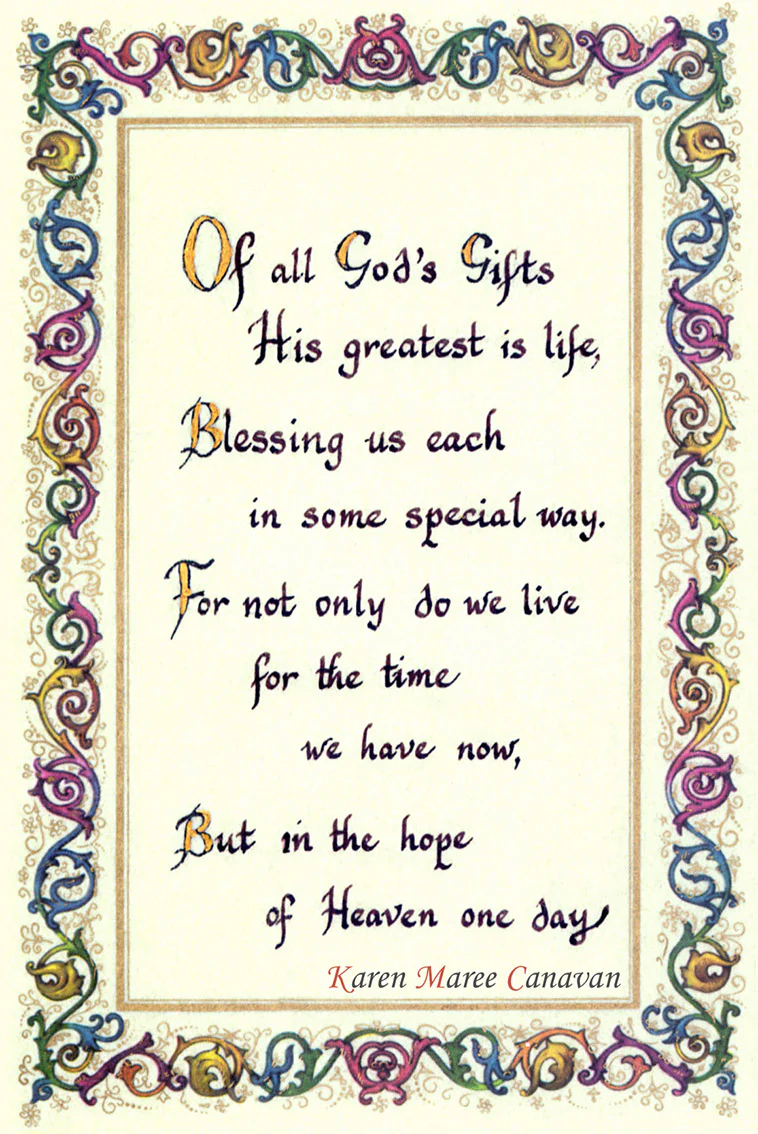 Of all God's Gifts
His greatest is life,
Blessing us each
in some special way.
For not only do we live
for the time
we have now,
But in the hope
of Heaven one day
Karen Maree Canavan